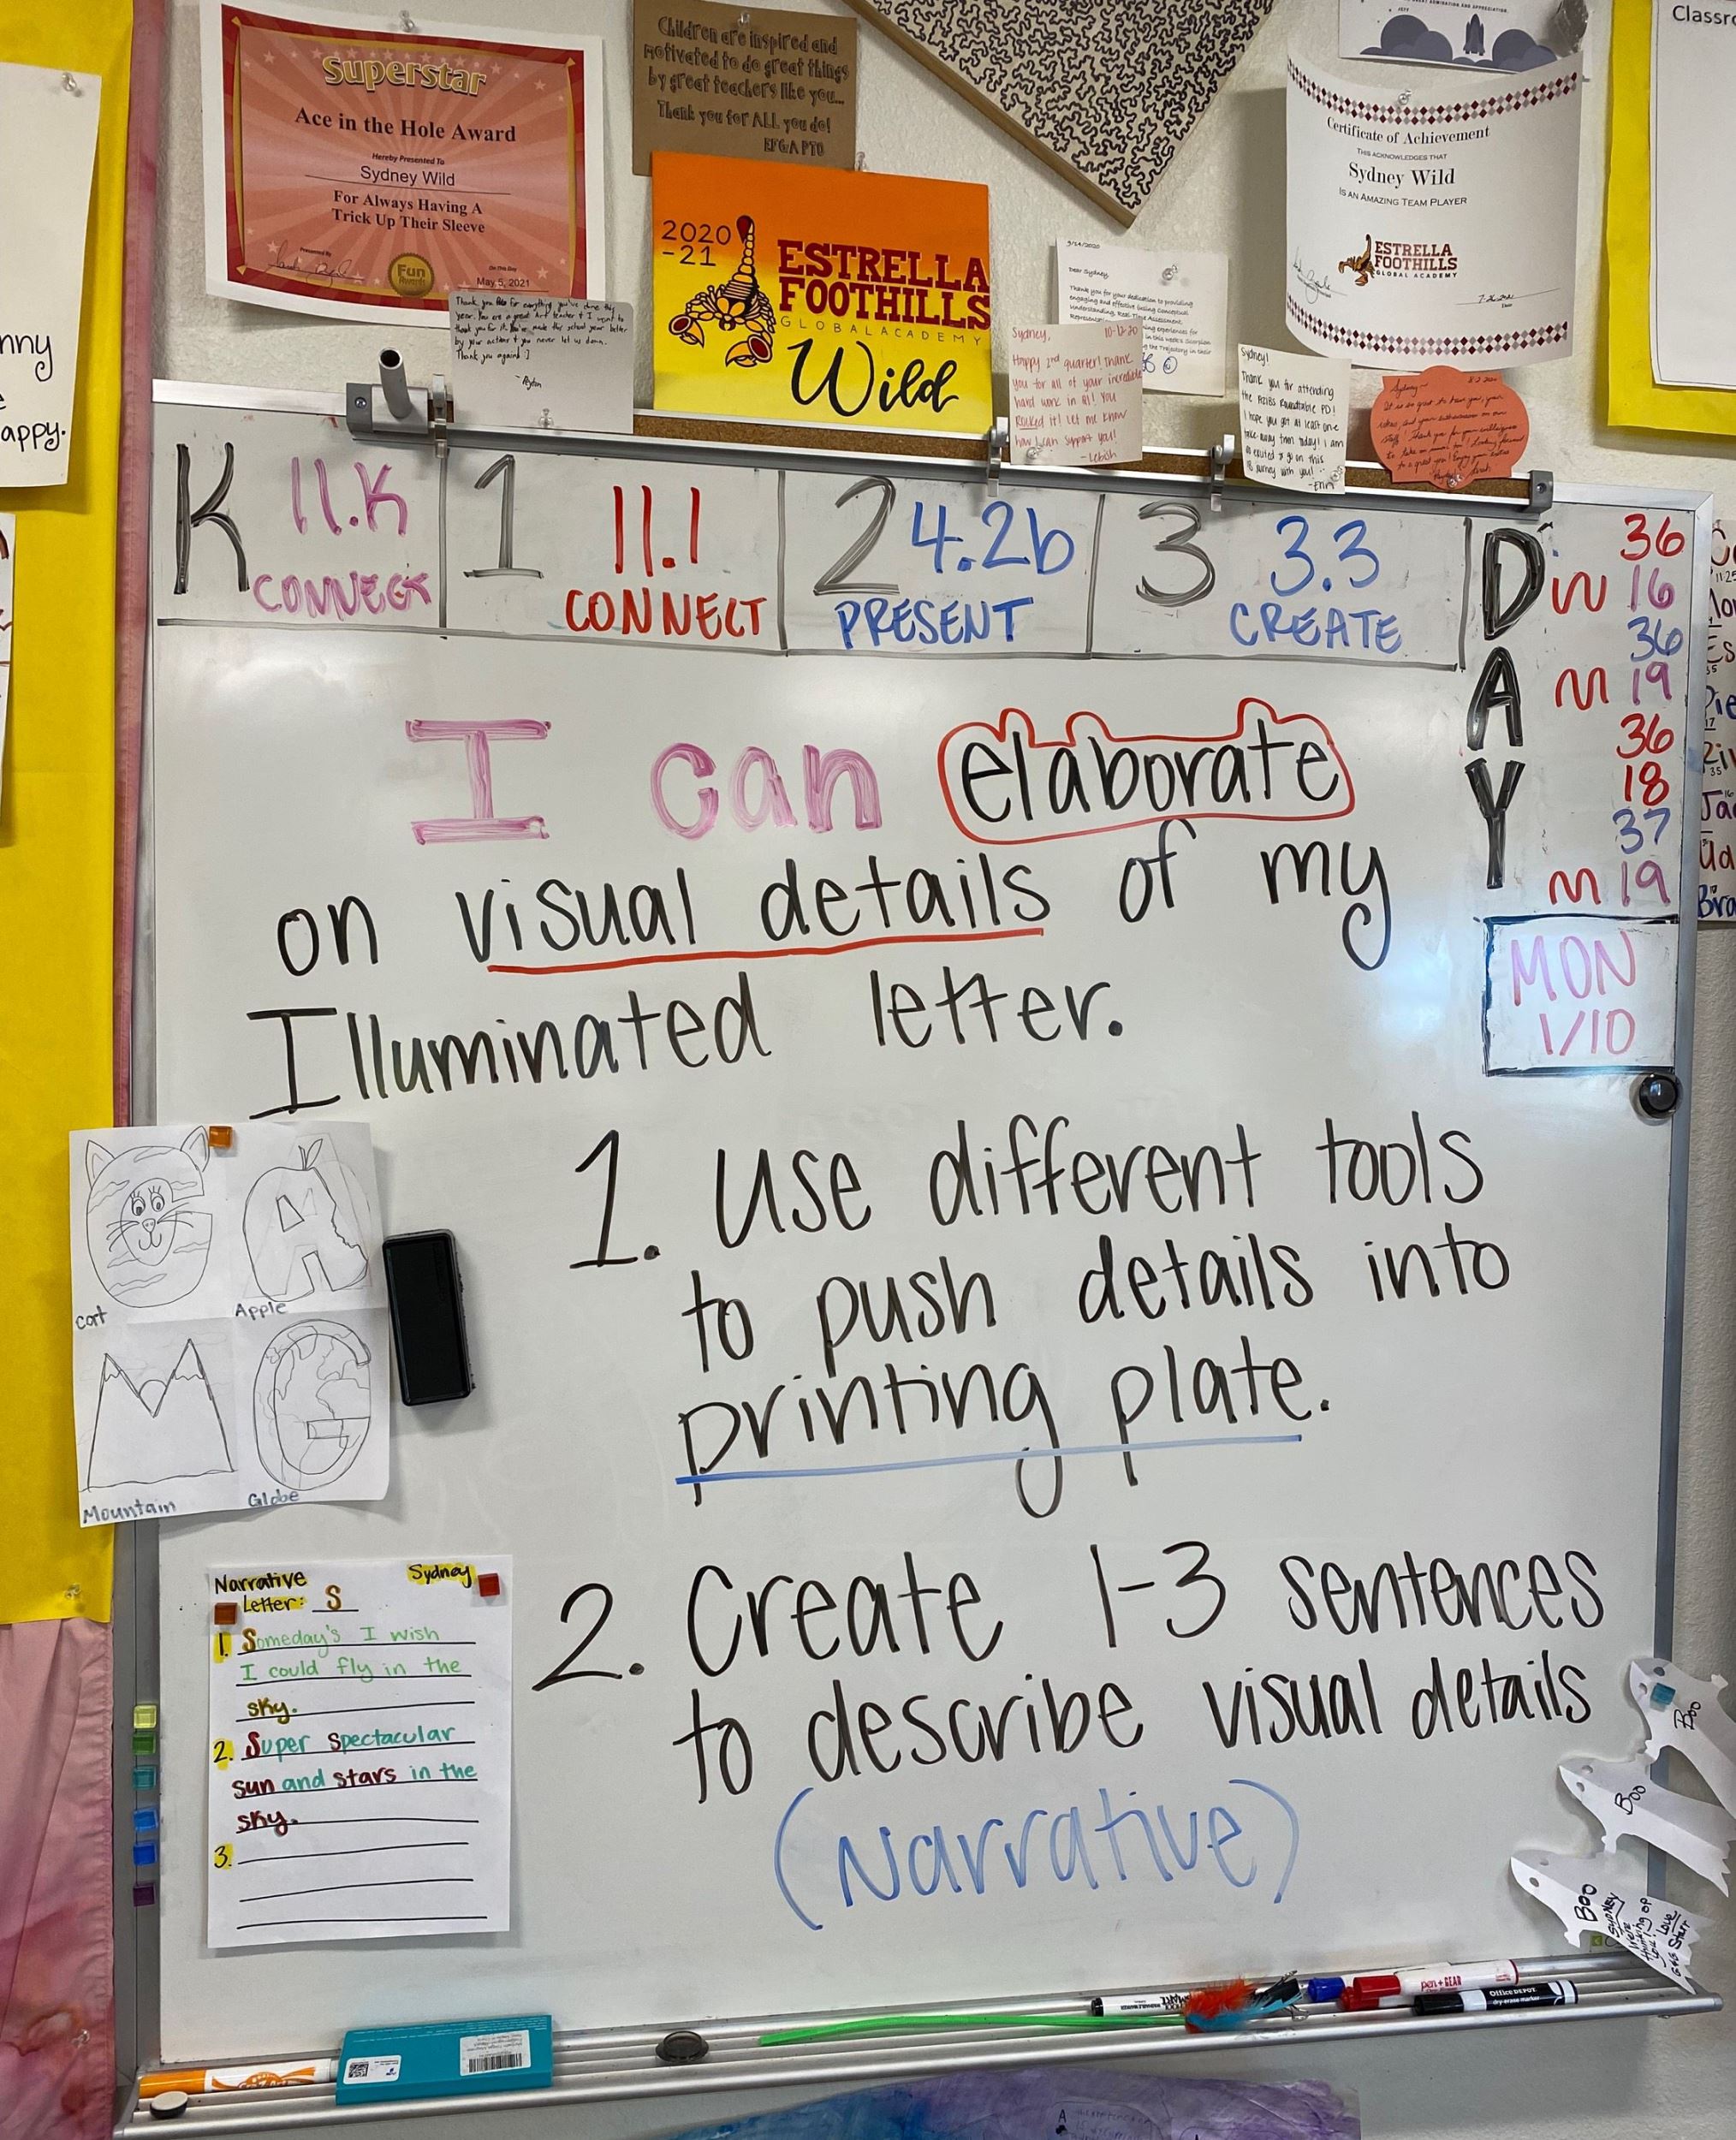 Superstar
Ace in the Hole Award
Hereby Presented To
Sydney Wild
For Always Having A
Trick Up Their Sleeve
Presented By
Fun
Awards
On This Day
May 5, 2021
Children are inspired and
motivated to do great things
by great teachers like you...
Thank you for ALL you do!
EFGA PTO
2020
-21
ESTRELLA
FOOTHILLS
GLOBAL ACADEMY
Wild
Certificate of Achievement
THIS ACKNOWLEDGES THAT
Sydney Wild
IS AN AMAZING TEAM PLAYER
ESTRELLA
FOOTHILLS
GLOBAL ACADEMY
Classro
nny
appy.
9/14/2020
Dear Sydney,
Thank you for your dedication to providing
engaging and effective
Sydney, 10-12-20
Happy 2nd quarter! Thank
you for all of your incredible
hard work in Q1! You
Rocked it! Let me know
how I can support you!
Sydney!
Thank you for attending
the AZIBS Roundtable PD!
I hope you got at least one
take away from today! I am
so excited to go on this
IB journey with you!
-Erin
Thank you for everything you've done this
year. You are a great Art teacher & I want to
thank you for it. You've made this school year better
by your actions & you never let us down.
Thank you again :)
K 11.K
CONNECT
1 11.1
CONNECT
2 4.2b
PRESENT
3 3.3
CREATE
D
A
Y
36
W 16
36
M 19
36
18
37
M 19
MON
1/10
I can elaborate
on visual details of my
Illuminated letter.
1. Use different tools
to push details into
printing plate.
2. Create 1-3 sentences
to describe visual details
(Narrative)
Cat
Apple
Mountain
Globe
Narrative Sydney
Letter: S
1. Someday's I wish
I could fly in the
sky.
2. Super spectacular
sun and stars in the
sky.
3.
Boo
Boo
Boo
SYDNEY
We're
thinking of
you!
Love
Starr
pen+GEAR
Office DEPOT
dry-erase marker